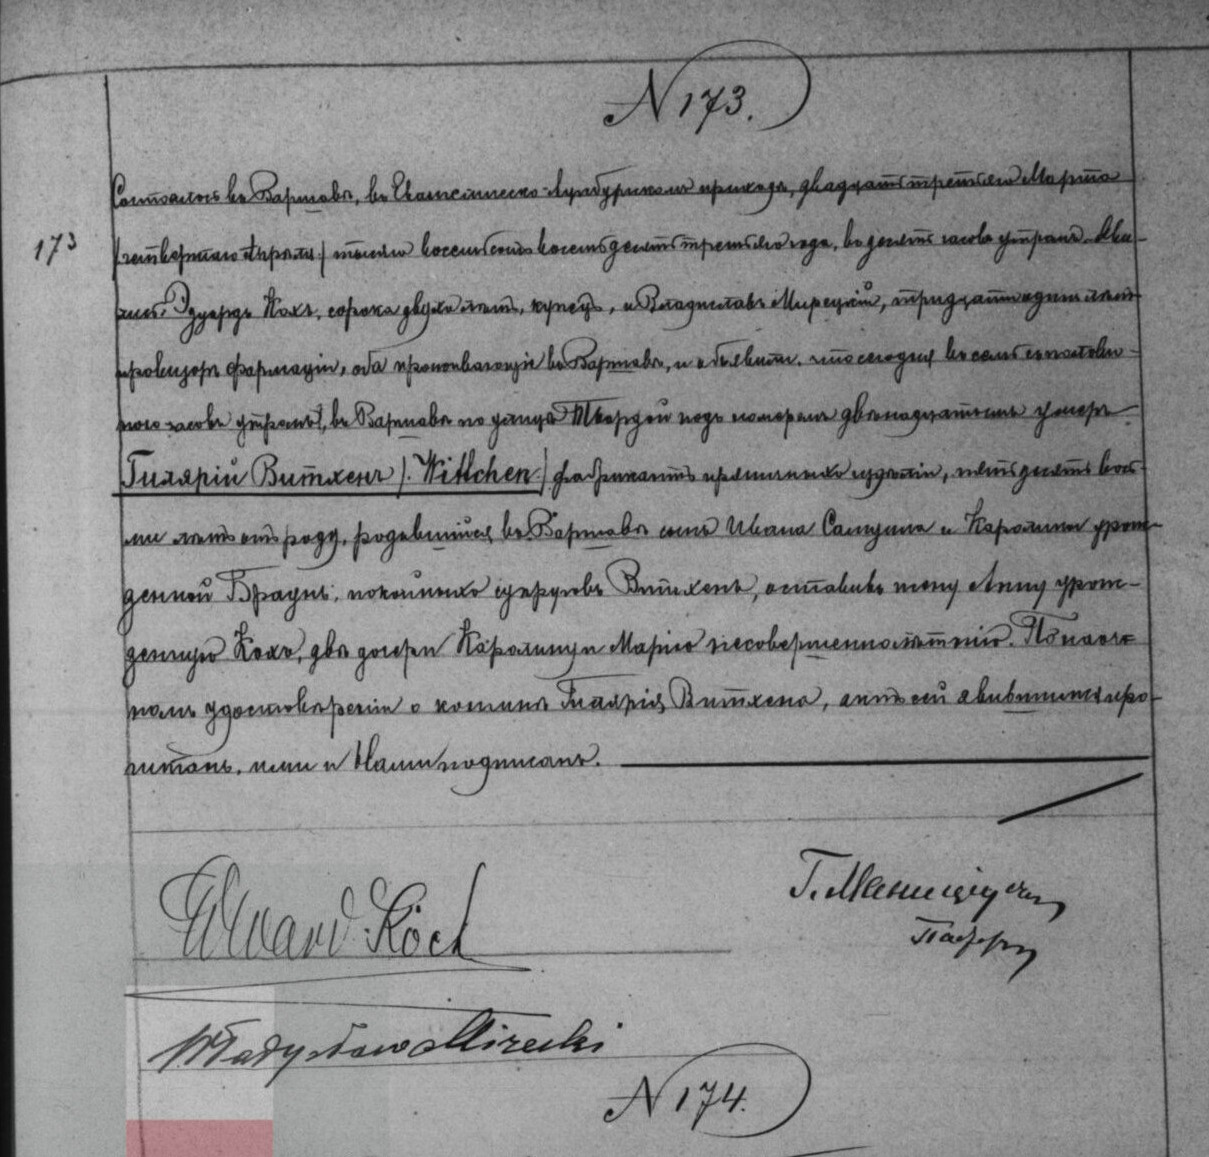 N 173.
Состоялось въ Варшавѣ, въ Евангелическо-Аугсбургскомъ приходѣ, двадцать третьяго Марта
173
/четвертаго Апрѣля/ тысяча восемьсотъ восемьдесятъ третьяго года, въ десять часовъ утромъ. Яви-
лись: Эдуардъ Кохъ, сорока двухъ лѣтъ, купецъ, и Владиславъ Мирецкій, тридцати одного лѣтъ
провизоръ фармаціи, оба проживающіе въ Варшавѣ, и объявили, что сегодня въ семь съ полови-
ною часовъ утромъ, въ Варшавѣ по улицѣ Твердой подъ номеромъ двѣнадцатымъ умеръ
Гилярій Витхенъ /Wittchen/ фабрикантъ издѣлій, пятьдесятъ вось-
ми лѣтъ отъ роду, родившійся въ Варшавѣ сынъ Ивана Самуила и Каролины урож-
денной Браунъ, покойныхъ супруговъ Витхенъ, оставивъ жену Анну урож-
денную Кохъ, двѣ дочери Каролину и Марію несовершеннолѣтнію. По налич-
номъ удостовѣреніи о кончинѣ Гилярія Витхена, актъ сей явившимся про-
читанъ, ими и Нами подписанъ.
Edward Koch
Пасторъ
Władysław Mirecki
N 174.